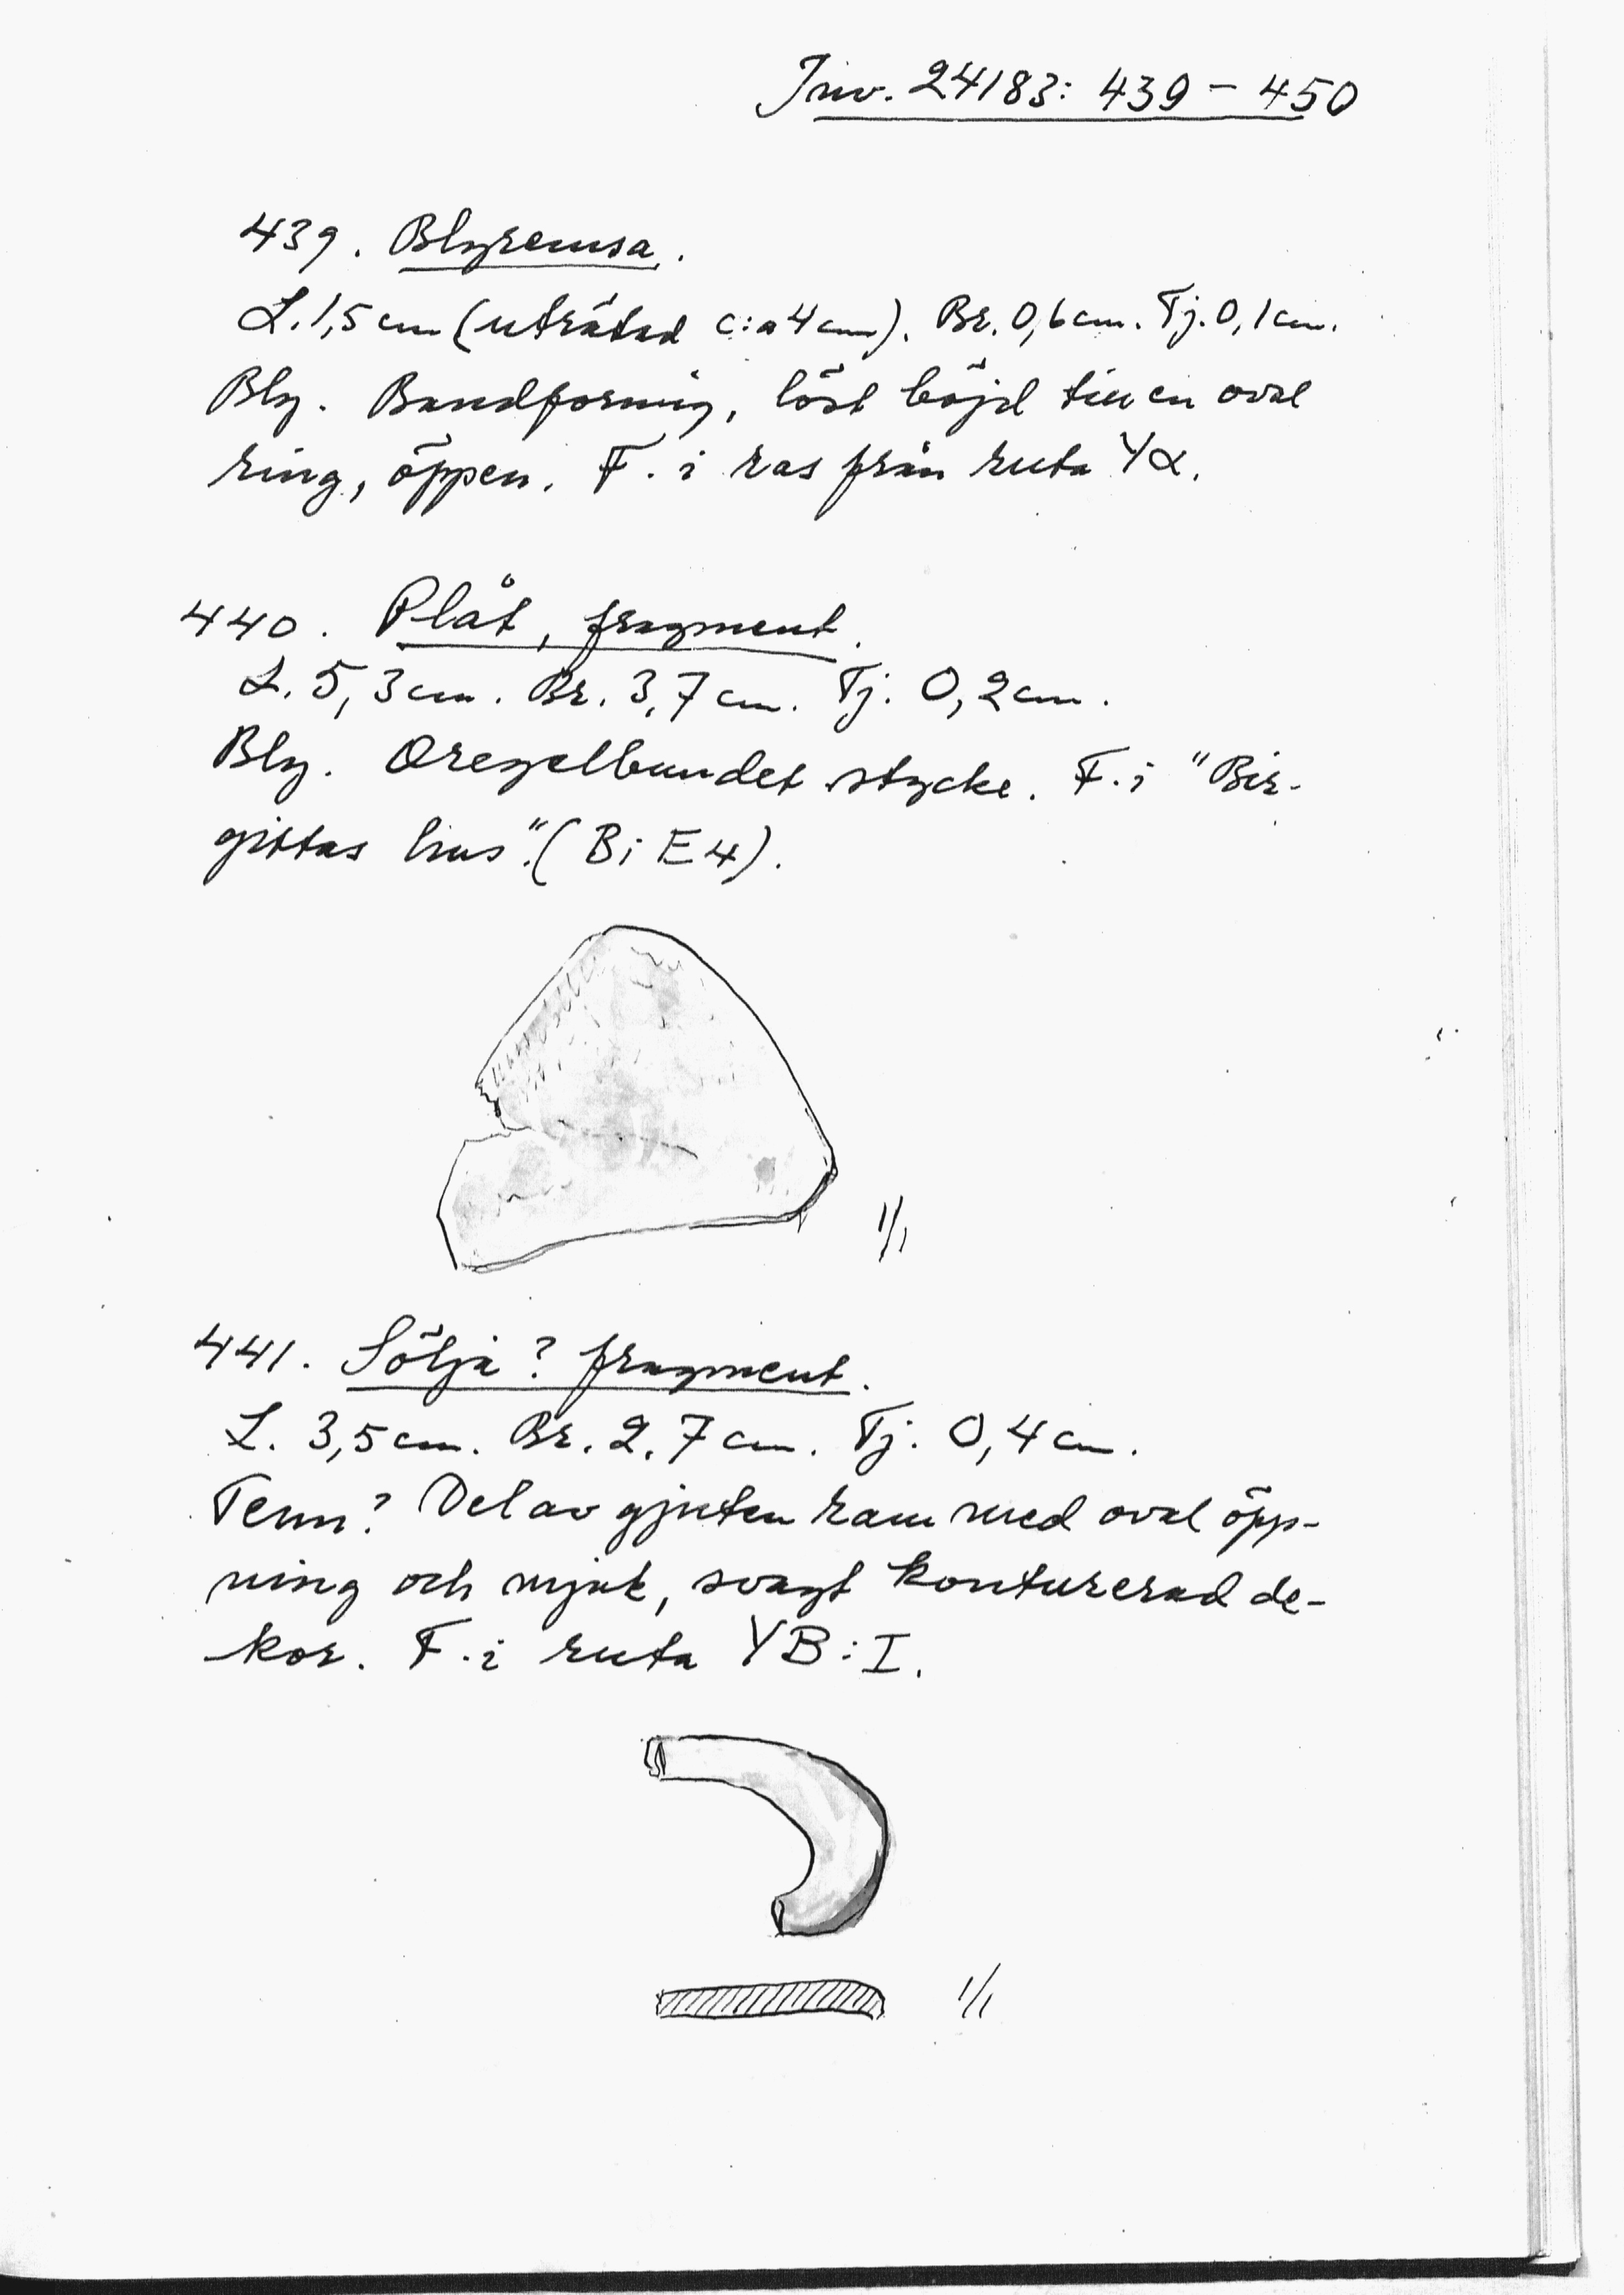 Inv. 24183: 439 – 450
439. Blyremsa.
L. 1,5 cm (uträtad c:a 4 cm). Br. 0,6 cm. Tj. 0,1 cm.
Bly. Bandformig, löst böjd till en oval
ring, öppen. F. i ras från ruta Yα.
440. Plåt, fragment.
L. 5,3 cm. Br. 3,7 cm. Tj. 0,2 cm.
Bly. Oregelbundet stycke. F. i "Bir-
gittas hus". (Bi E4).
1/1
441. Sölja? fragment.
L. 3,5 cm. Br. 2,7 cm. Tj. 0,4 cm.
Tenn? Del av gjuten ram med oval öpp-
ning och mjuk, svagt konturerad de-
kor. F. i ruta YB:I.
1/1